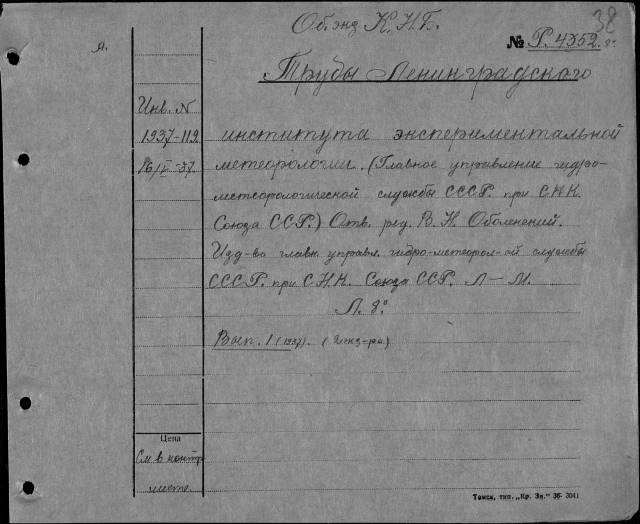 Об.энз К.Н.Б.
38
л.
№ Р.4352. 8°.
Трубы Ленинградского
Инв. N
1937-119
института экспериментальной
16/II-37
метеорологии. (Главное управление гидро-
метеорологической службы СССР. при С.Н.К.
Союза ССР.) Отв. ред. В. Н. Оболенский.
Изд-во главн. управл. гидро-метеорол-ой службы
СССР. при С.Н.К. Союза ССР. Л—М.
Л. 8°
Вып. 1 (1937).
Цена
См. в контр
листе.
Томск, тип. „Кр. Зн.“ 36- 3041